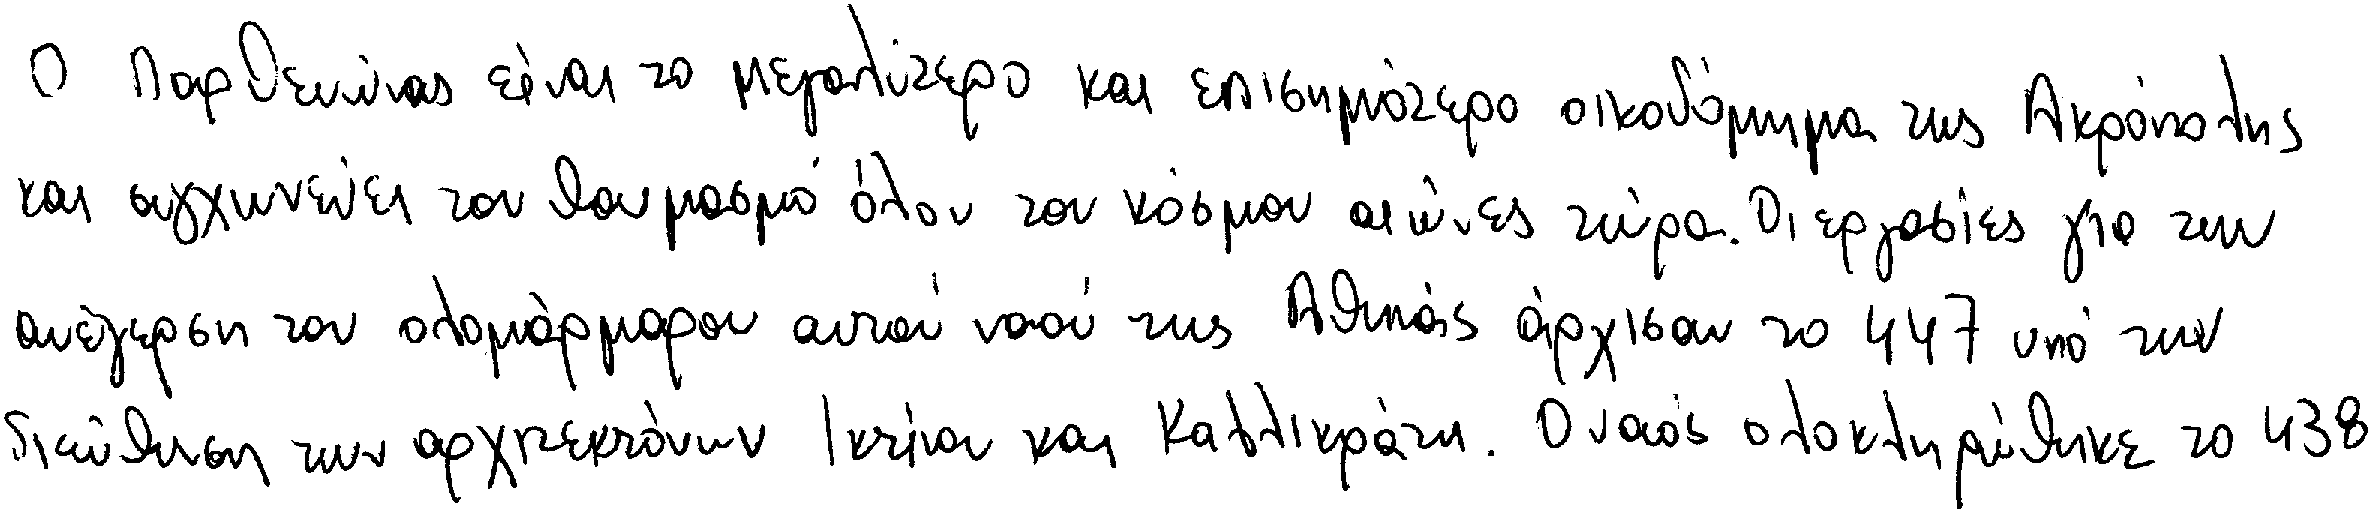 Ο Παρθενώνας είναι το μεγαλύτερο και επισημότερο οικοδόμημα της Ακρόπολης
και συγχωνεύει τον θαυμασμό όλου του κόσμου αιώνες τώρα. Οι εργασίες για την
ανέγερση του ολομάρμαρου αυτού ναού της Αθηνάς άρχισαν το 447 υπό την
διεύθηνση των αρχιτεκτόνων Ικτίνου και Καλλικράτη. Ο ναός ολοκληρώθηκε το 438